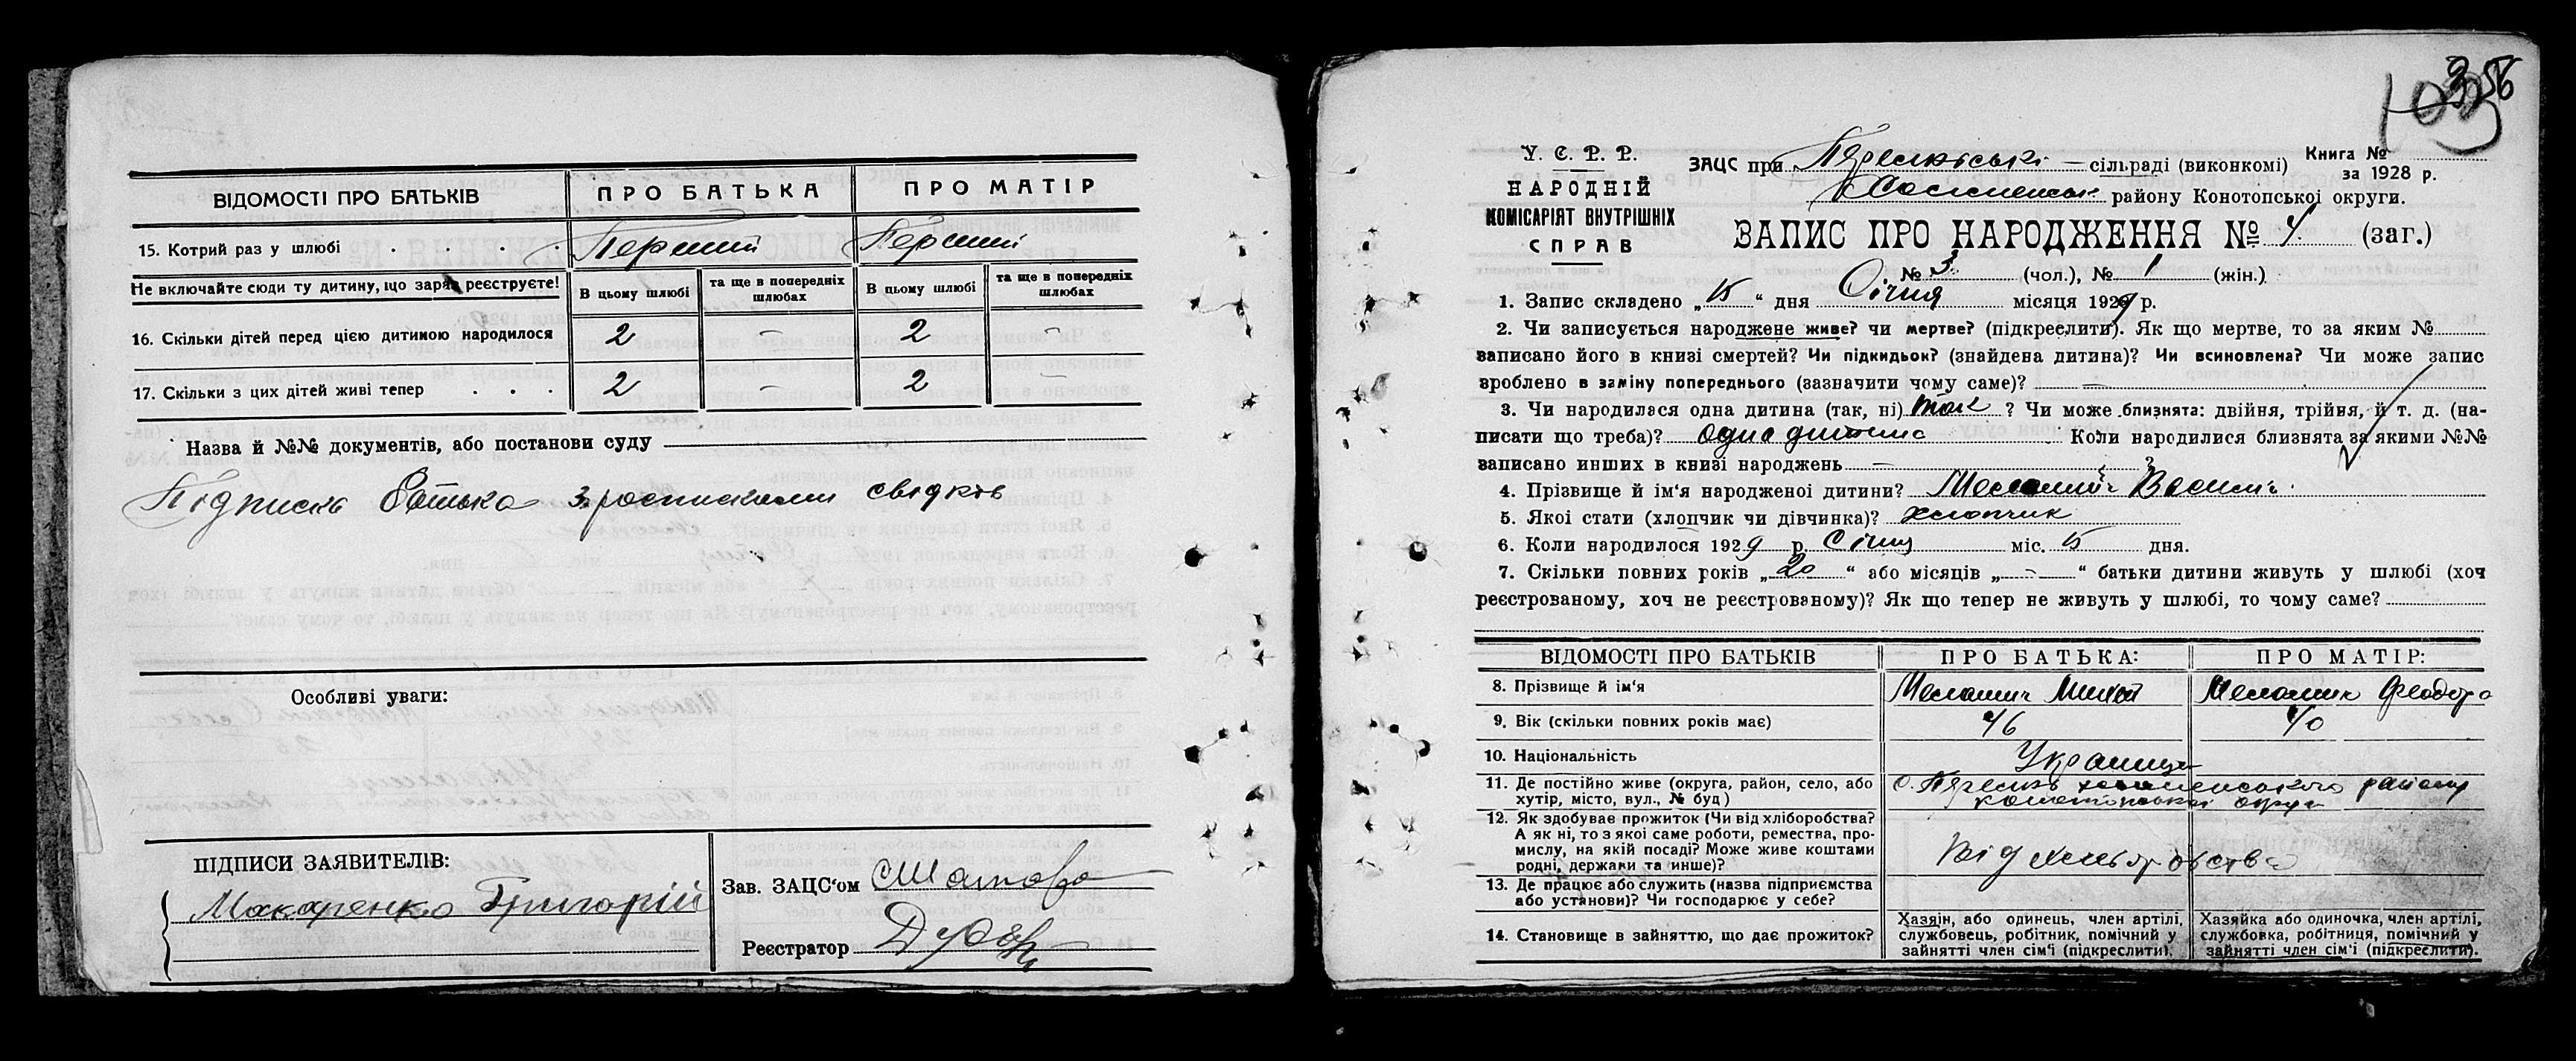 ВІДОМОСТІ ПРО БАТЬКІВ ПРО БАТЬКА ПРО МАТІР
15. Котрий раз у шлюбі . . . . Перший Перший
Не включайте сюди ту дитину, що зараз реєструєте! В цьому шлюбі та ще в попередніх шлюбах В цьому шлюбі та ще в попередніх шлюбах
16. Скільки дітей перед цією дитиною народилося 2 — 2 —
17. Скільки з цих дітей живі тепер . . . 2 — 2 —
Назва й №№ документів, або постанови суду
Підпискь батька з росписками свідків
Особливі уваги:
ПІДПИСИ ЗАЯВИТЕЛІВ:
Макаренко Григорій
Зав. ЗАЦС'ом
Реєстратор
356
У. С. Р. Р.
НАРОДНІЙ
КОМІСАРІЯТ ВНУТРІШНІХ
СПРАВ
ЗАЦС при сільраді (виконкомі) Книга №
за 1928 р.
району Конотопської округи.
ЗАПИС ПРО НАРОДЖЕННЯ № 4 (заг.)
№ 3 (чол.), № 1 (жін.)
1. Запис складено „15“ дня Січня місяця 1929 р.
2. Чи записується народжене живе? чи мертве? (підкреслити). Як що мертве, то за яким №
записано його в книзі смертей? Чи підкидьок? (знайдена дитина)? Чи всиновлена? Чи може запис
зроблено в заміну попереднього (зазначити чому саме)? —
3. Чи народилася одна дитина (так, ні) так ? Чи може близнята: двійня, трійня, й т. д. (на-
писати що треба)? Одна дитина Коли народилися близнята за якими №№
записано инших в книзі народжень — ?
4. Прізвище й ім'я народженої дитини? Василь
5. Якої стати (хлопчик чи дівчинка)? хлопчик
6. Коли народилося 1929 р. Січня міс. 15 дня.
7. Скільки повних років „20“ або місяців „-“ батьки дитини живуть у шлюбі (хоч
реєстрованому, хоч не реєстрованому)? Як що тепер не живуть у шлюбі, то чому саме?
ВІДОМОСТІ ПРО БАТЬКІВ ПРО БАТЬКА: ПРО МАТІР:
8. Прізвище й ім'я
9. Вік (скільки повних років має) 46 40
10. Національність Українці
11. Де постійно живе (округа, район, село, або
хутір, місто, вул., № буд) району
округи
12. Як здобуває прожиток (Чи від хліборобства?
А як ні, то з якої саме роботи, ремества, про-
мислу, на якій посаді? Може живе коштами
родні, держави та инше)? Від хліборобства
13. Де працює або служить (назва підприємства
або установи)? Чи господарює у себе?
14. Становище в зайняттю, що дає прожиток?
Хазяїн, або одинець, член артілі,
службовець, робітник, помічний у
зайнятті член сім'ї (підкреслити).
Хазяйка або одиночка, член артілі,
службовка, робітниця, помічний у
зайнятті член сім'ї (підкреслити).